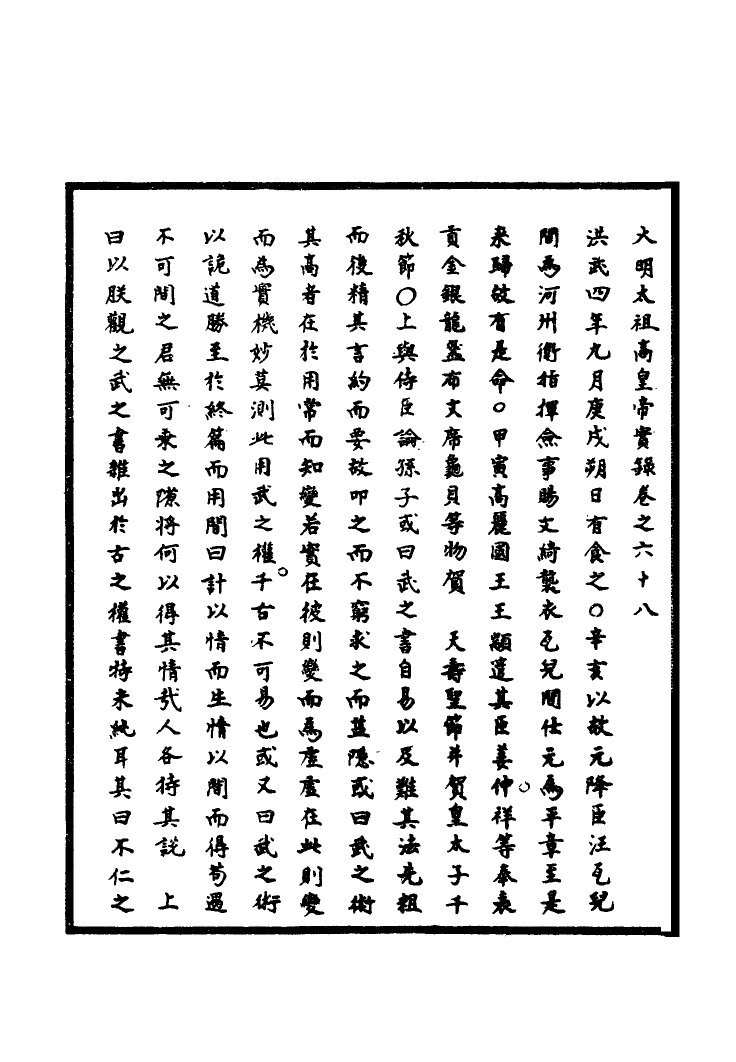 大明太祖高皇帝實錄卷之六十八
洪武四年九月庚戌朔日有食之○辛亥以故元降臣汪瓦兒
間為河州衛指揮僉事賜文綺襲衣瓦兒間仕元為平章至是
來歸故有是命○甲寅高麗國王王顓遣其臣姜仲祥等奉表
貢金銀龍盞布文席龜貝等物賀　天壽聖節并賀皇太子千
秋節○上與侍臣論孫子或曰武之書自易以及難其法先粗
而後精其言約而要故叩之而不窮求之而益隱或曰武之術
其高者在於用常而知變若實在彼則變而為虛虛在此則變
而為實機妙莫測此用武之權千古不可易也或又曰武之術
以詭道勝至於終篇而用間曰計以情而生情以間而得苟遇
不可間之君無可乘之隙將何以得其情哉人各持其説　上
曰以朕觀之武之書雜出於古之權書特未純耳其曰不仁之